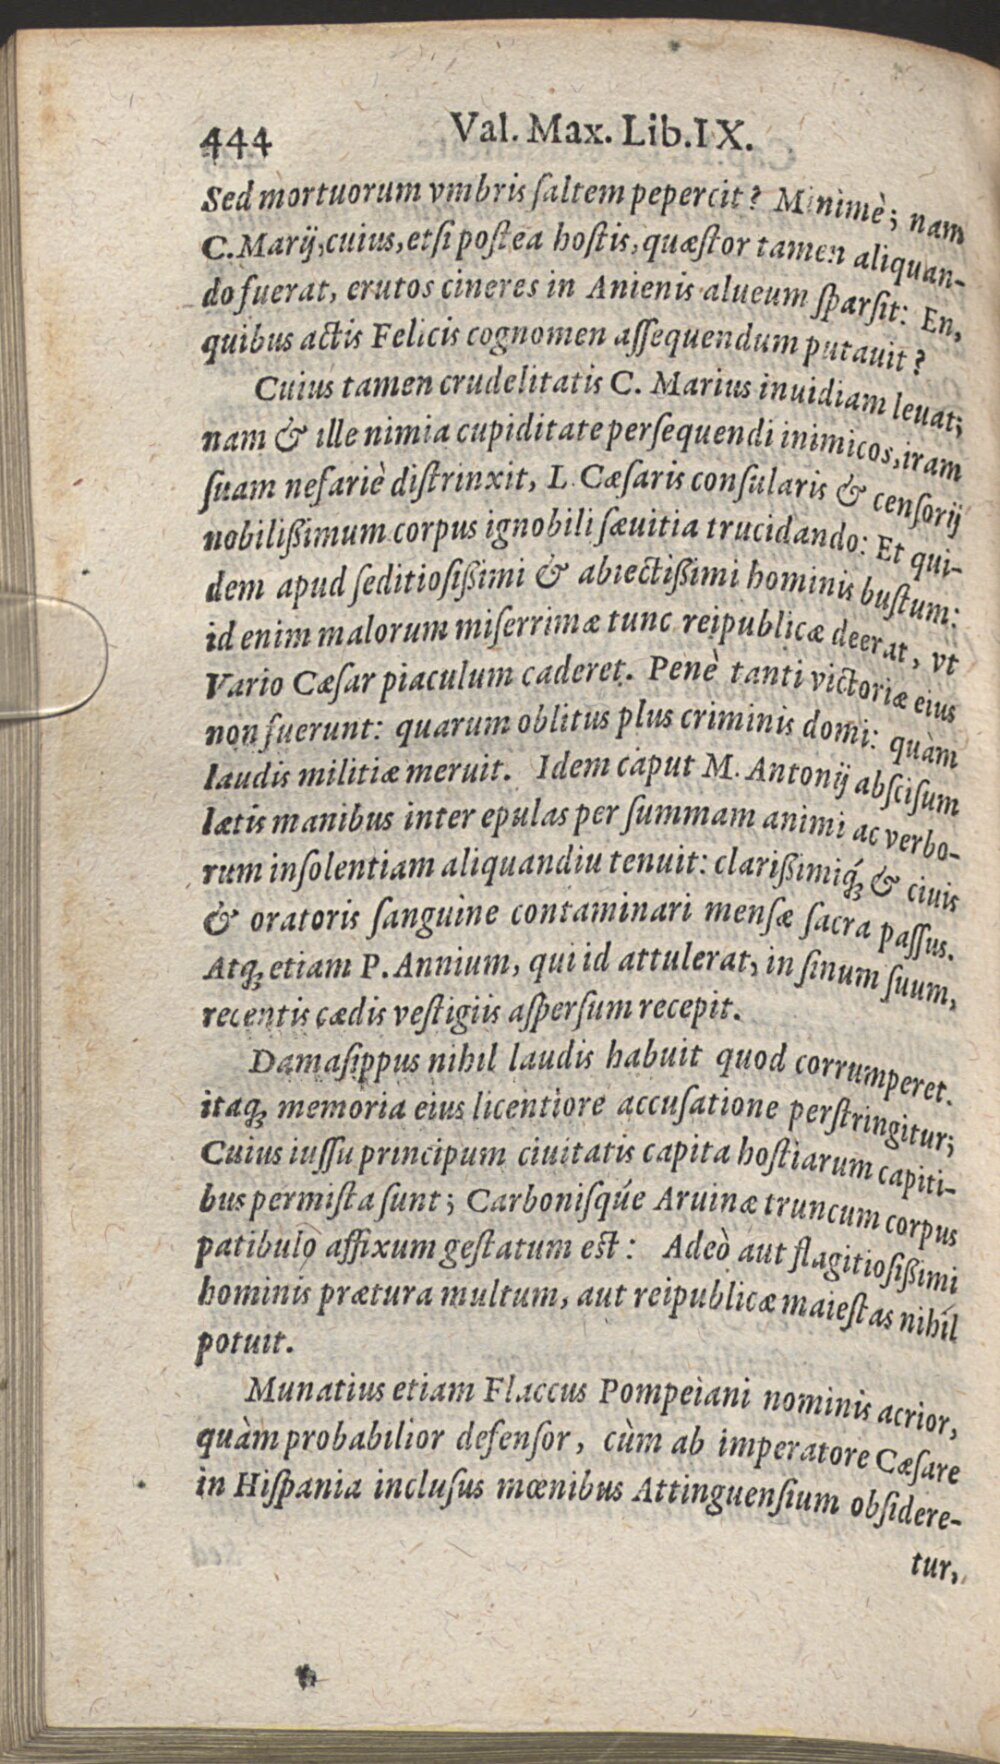 444 Val. Max. Lib.IX.
Sed mortuorum vmbris ſaltem pepercit? Minimè; nam
C.Marij,cuius,etſi poſtea hoſtis,quæſtor tamen aliquan-
do fuerat, erutos cineres in Anienis alueum ſparſit: En,
quibus actis Felicis cognomen aſſequendum putauit?
Cuius tamen crudelitatis C. Marius inuidiam leuat;
nam & ille nimia cupiditate perſequendi inimicos,iram
ſuam nefariè diſtrinxit, L. Cæſaris conſularis & cenſorij
nobilißimum corpus ignobili ſæuitia trucidando: Et qui-
dem apud ſeditioſißimi & abiectißimi hominis buſtum:
id enim malorum miſerrimæ tunc reipublicæ deerat, vt
Vario Cæſar piaculum caderet. Penè tanti victoriæ eius
non fuerunt: quarum oblitus plus criminis domi: quàm
laudis militiæ meruit. Idem caput M. Antonij abſciſum
lætis manibus inter epulas per ſummam animi ac verbo-
rum inſolentiam aliquandiu tenuit: clarißimiq́; & ciuis
& oratoris ſanguine contaminari menſæ ſacra paſſus.
Atq; etiam P. Annium, qui id attulerat, in ſinum ſuum,
recentis cædis veſtigiis aſperſum recepit.
Damaſippus nihil laudis habuit quod corrumperet.
itaq; memoria eius licentiore accuſatione perſtringitur;
Cuius iuſſu principum ciuitatis capita hoſtiarum capiti-
bus permiſta ſunt; Carboniſqúe Aruinæ truncum corpus
patibulo affixum geſtatum eſt: Adeò aut flagitioſißimi
hominis prætura multum, aut reipublicæ maieſtas nihil
potuit.
Munatius etiam Flaccus Pompeiani nominis acrior,
quàm probabilior defenſor, cùm ab imperatore Cæſare
in Hiſpania incluſus mœnibus Attinguenſium obſidere-
tur,